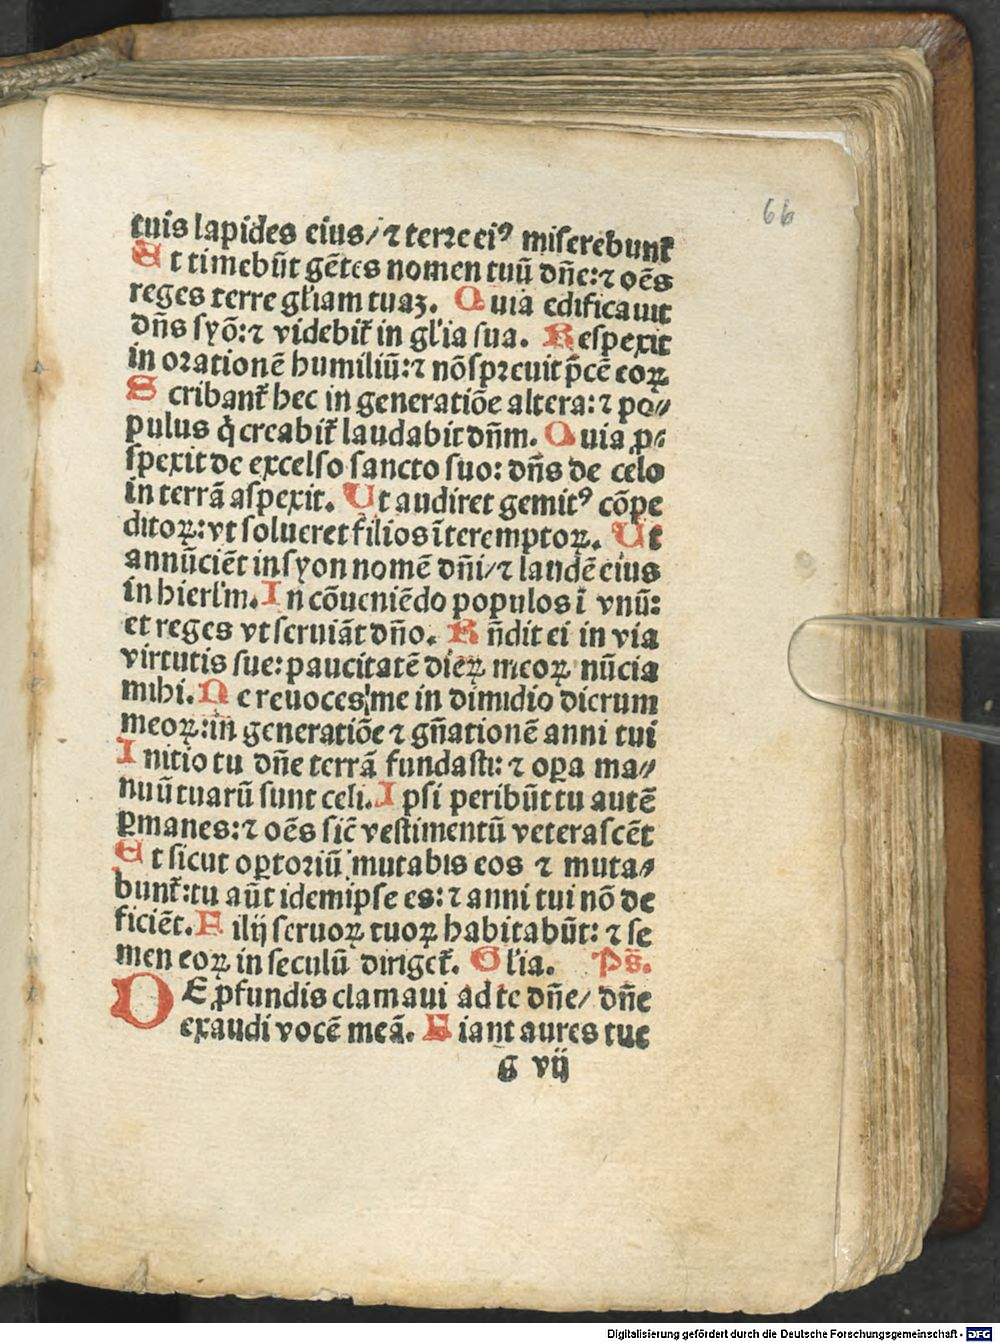 66
tuis lapides eius/ ⁊ terre eiꝰ miserebunt᷑
Et timebūt gētes nomen tuū dn̄e: ⁊ oēs
reges terre gl'iam tuaꝫ. Quia edificauit
dn̄s syō: ⁊ videbit᷑ in gl'ia sua. Respexit
in orationē humiliū: ⁊ nō spreuit p̄cē eoꝝ
Scribant᷑ hec in generatiōe altera: ⁊ po⸗
pulus q̇ creabit᷑ laudabit dn̄m. Quia ꝓ⸗
spexit de excelso sancto suo: dn̄s de celo
in terrā aspexit. Ut audiret gemitꝰ cōpe
ditoꝝ: vt solueret filios īteremptoꝝ. Ut
annūciēt in syon nomē dn̄i/ ⁊ laudē eius
in hierl'm. In cōueniēdo populos ī vnū:
et reges vt seruiāt dn̄o. Rn̄dit ei in via
virtutis sue: paucitatē dieꝝ meoꝝ nūcia
mihi. Ne reuoces me in dimidio dierum
meoꝝ: in generatiōe ⁊ gn̄ationē anni tui
Initio tu dn̄e terrā fundasti: ⁊ oꝑa ma⸗
nuū tuarū sunt celi. Ipsi peribūt tu autē
ꝑmanes: ⁊ oēs sic̄ vestimentū veterascēt
Et sicut oꝑtoriū mutabis eos ⁊ muta⸗
bunt᷑: tu aūt idem ipse es: ⁊ anni tui nō de
ficiēt. Filij seruoꝝ tuoꝝ habitabūt: ⁊ se
men eoꝝ in seculū diriget᷑. Gl'ia. Ps̄.
DE ꝓfundis clamaui ad te dn̄e/ dn̄e
exaudi vocē meā. Fiant aures tue
g vij
Digitalisierung gefördert durch die Deutsche Forschungsgemeinschaft - DFG